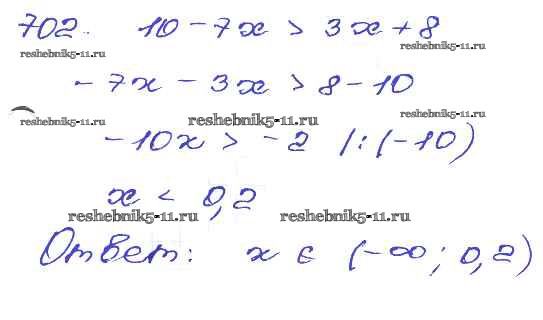 702. 10 - 7x > 3x + 8
reshebnik5-11.ru reshebnik5-11.ru
- 7x - 3x > 8 - 10
reshebnik5-11.ru reshebnik5-11.ru reshebnik5-11.ru
- 10x > - 2 /:(-10)
x < 0,2
reshebnik5-11.ru reshebnik5-11.ru
Ответ: x ∈ (-∞; 0,2)